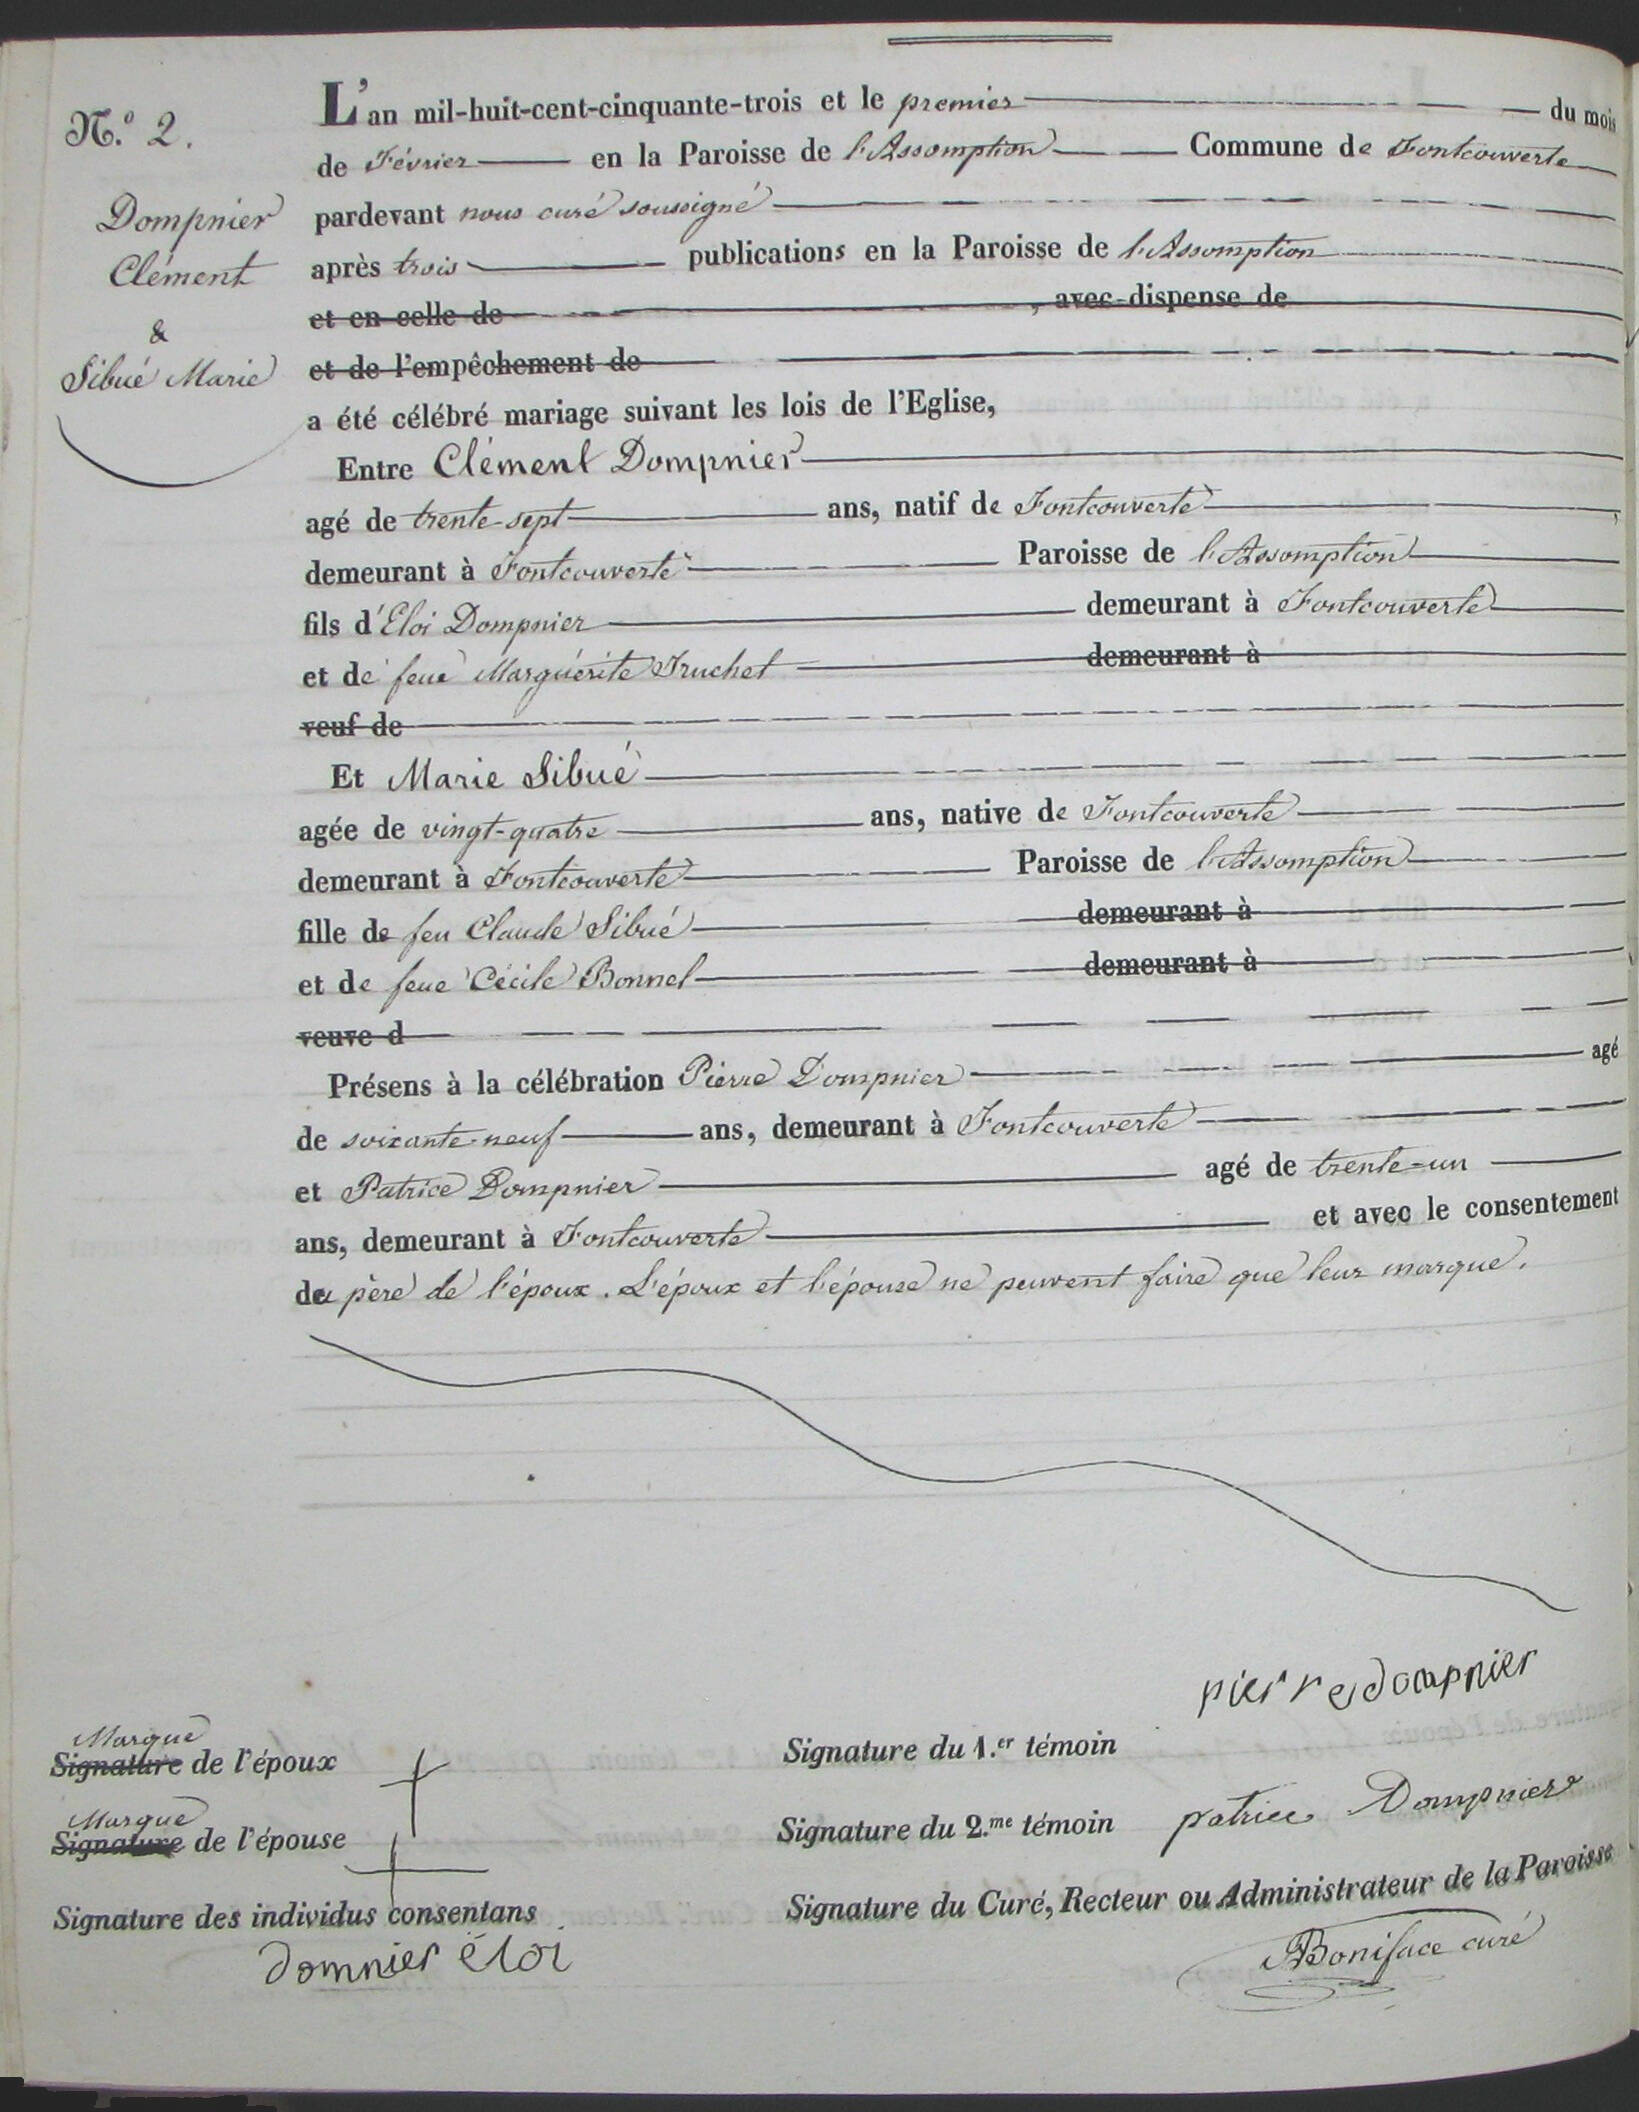 N.º 2.
Dompnier
Clément
&
Sibué Marie
L'an mil-huit-cent-cinquante-trois et le premier du mois
de Février en la Paroisse de l'Assomption Commune de Fontcouverte
pardevant nous curé soussigné
après trois publications en la Paroisse de l'Assomption
et en celle de , avec dispense de
et de l'empêchement de
a été célébré mariage suivant les lois de l'Eglise,
Entre Clément Dompnier
agé de trente-sept ans, natif de Fontcouverte
demeurant à Fontcouverte Paroisse de l'Assomption
fils d'Eloi Dompnier demeurant à Fontcouverte
et de feue Marguérite Truchet demeurant à
veuf de
Et Marie Sibué
agée de vingt-quatre ans, native de Fontcouverte
demeurant à Fontcouverte Paroisse de l'Assomption
fille de feu Claude Sibué demeurant à
et de feue Cécile Bonnel demeurant à
veuve d
Présens à la célébration Pierre Dompnier agé
de soixante-neuf ans, demeurant à Fontcouverte
et Patrice Dompnier agé de trente-un
ans, demeurant à Fontcouverte et avec le consentement
du père de l'époux. L'époux et l'épouse ne peuvent faire que leur marque.
pierre dompnier
Marque
Signature de l'époux
Signature du 1.er témoin
Marque
Signature de l'épouse
Signature du 2.me témoin patrice Dompnier
Signature des individus consentans
Signature du Curé, Recteur ou Administrateur de la Paroisse
domnier éloi
Boniface curé